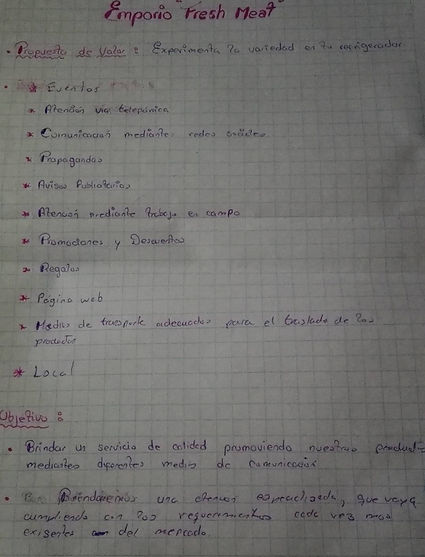 Emporio "Fresh Meat"
• Propuesta de Valor : Experimenta la variedad en tu corrigerador
• * Eventos
* Atención via telefonica
* Comunicacion mediante redes sociales
* Propagandas
* Avisos Publicitarios
* Atencion mediante trabajo en campo
* Promociones y Descuentos
* Regalos
* Página web
* Medios de transporte adecuados para el traslado de los
productos
* Local
Objetivo :
• Brindar un servicio de calidad promoviendo nuestros productos
mediantes diferentes medios de comunicación
• Brindaremos una atencion especializada, que vaya
cumpliendo con los requerimientos cada vez mas
exigentes del mercado.